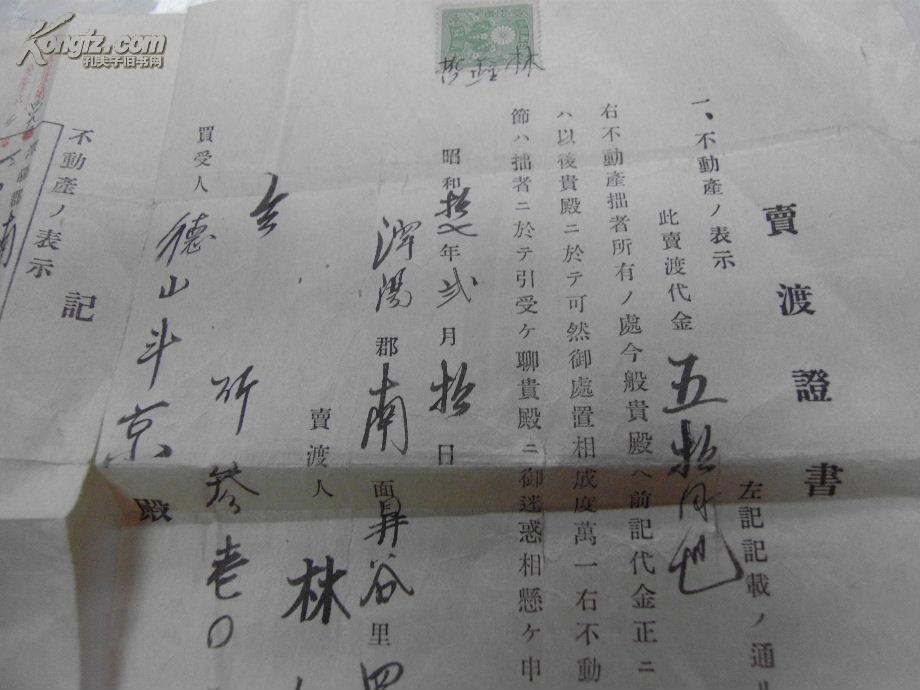 Kongfz.com
孔夫子旧书网
賣渡證書
一、不動產ノ表示
左記記載ノ通
此賣渡代金五拾円也
右不動產拙者所有ノ處今般貴殿ヘ前記代金正ニ
ハ以後貴殿ニ於テ可然御處置相成度萬一右不動
節ハ拙者ニ於テ引受ケ聊貴殿ニ御迷惑相懸ケ申
昭和拾七年弐月拾日
郡南面昇谷里四
賣渡人 林
仝 所参壱〇
買受人 德山斗京殿
記
不動產ノ表示